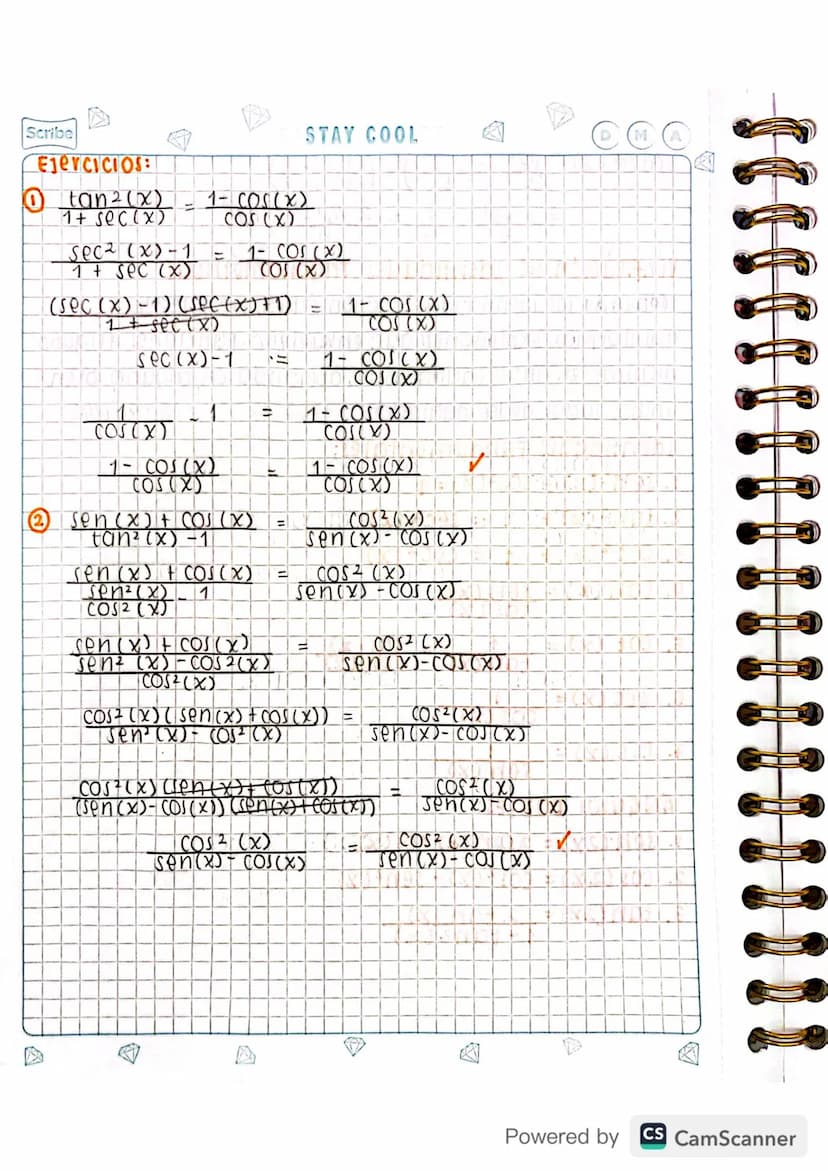 Scribe
STAY COOL
D M A
Ejercicios:
① tan²(x) / 1 + sec(x) = 1 - cos(x) / cos(x)
sec²(x) - 1 / 1 + sec(x) = 1 - cos(x) / cos(x)
(sec(x) - 1)(sec(x) + 1) / 1 + sec(x) = 1 - cos(x) / cos(x)
sec(x) - 1 = 1 - cos(x) / cos(x)
1 / cos(x) - 1 = 1 - cos(x) / cos(x)
1 - cos(x) / cos(x) = 1 - cos(x) / cos(x) ✓
② sen(x) + cos(x) / tan²(x) - 1 = cos²(x) / sen(x) - cos(x)
sen(x) + cos(x) / sen²(x) / cos²(x) - 1 = cos²(x) / sen(x) - cos(x)
sen(x) + cos(x) / sen²(x) - cos²(x) / cos²(x) = cos²(x) / sen(x) - cos(x)
cos²(x)(sen(x) + cos(x)) / sen²(x) - cos²(x) = cos²(x) / sen(x) - cos(x)
cos²(x)(sen(x) + cos(x)) / (sen(x) - cos(x))(sen(x) + cos(x)) = cos²(x) / sen(x) - cos(x)
cos²(x) / sen(x) - cos(x) = cos²(x) / sen(x) - cos(x) ✓
Powered by CS CamScanner